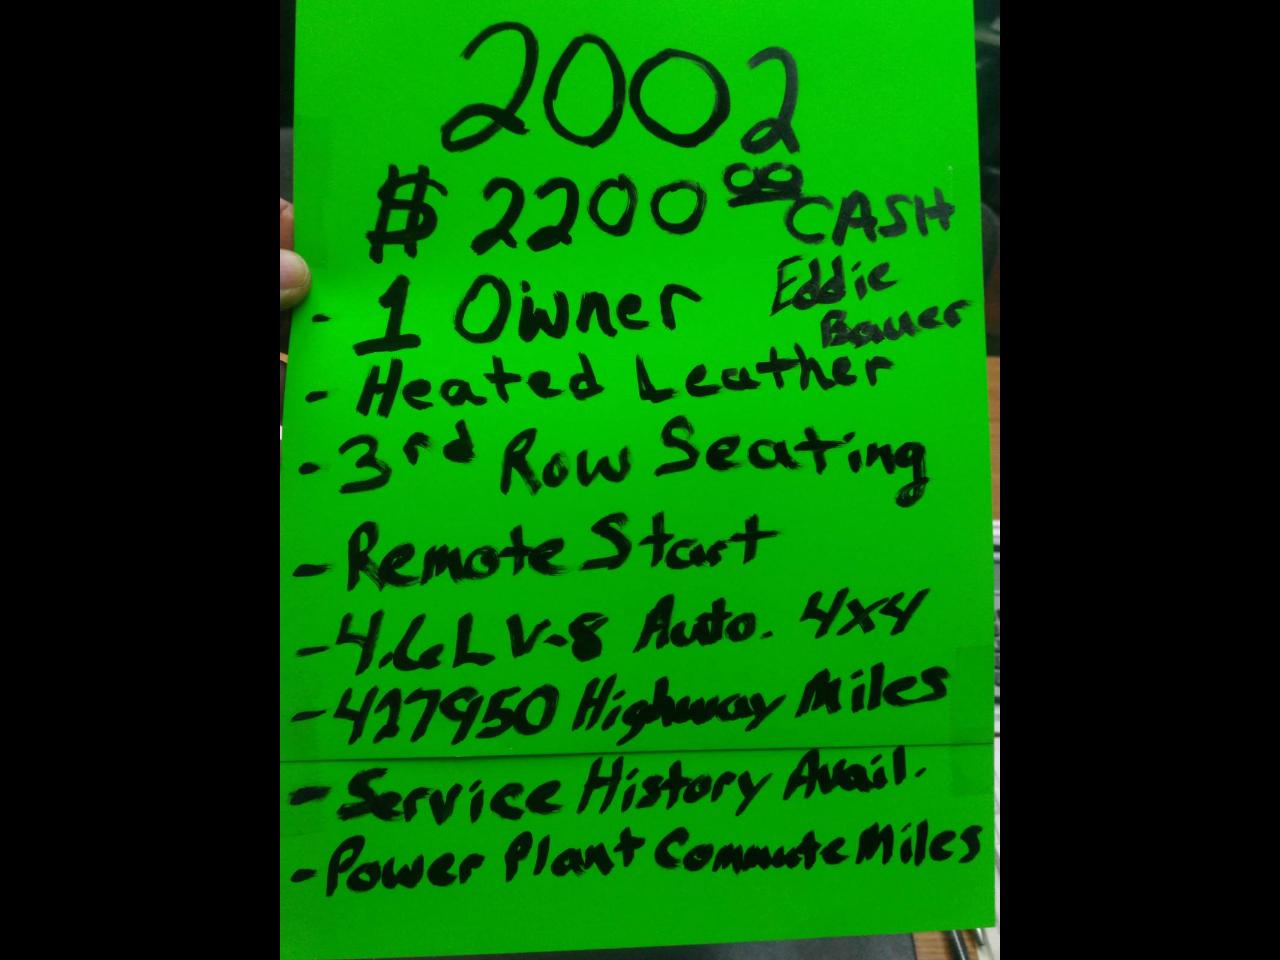 2002
$2200 00 CASH
- 1 Owner
Eddie
Bauer
- Heated Leather
- 3rd Row Seating
- Remote Start
- 4.6L V-8 Auto. 4x4
- 427950 Highway Miles
- Service History Avail.
- Power Plant Commute Miles